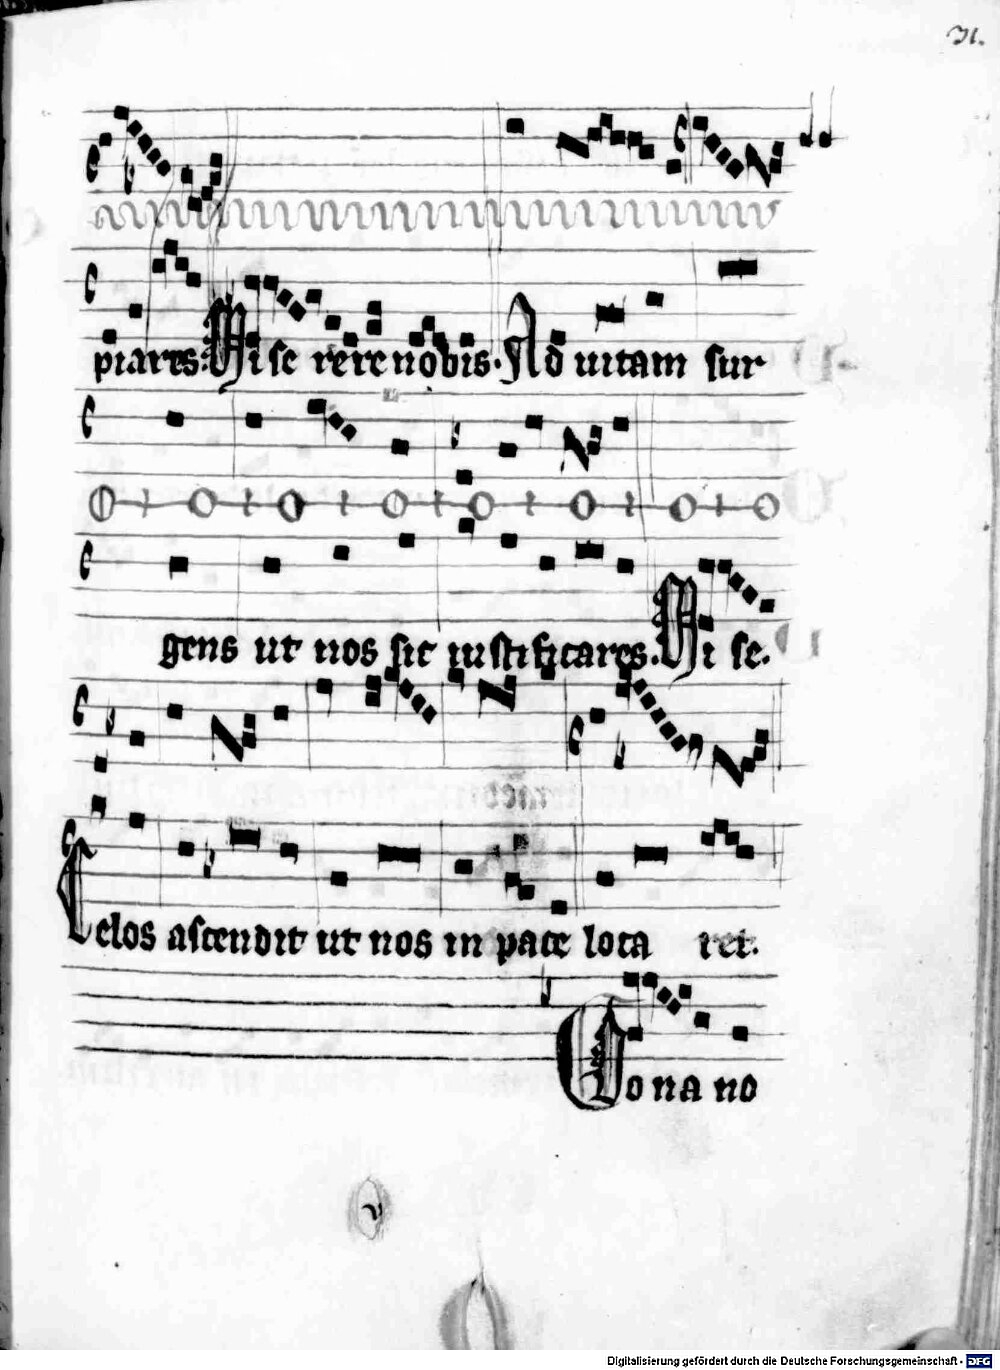 31.
piares. Mi se rere nobis. Ad uitam sur
gens ut nos sic iustificares. Mi se.
Celos ascendit ut nos in pace loca ret.
Dona no
Digitalisierung gefördert durch die Deutsche Forschungsgemeinschaft - DFG